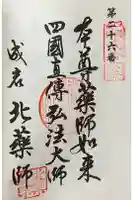 第二十六番
本尊薬師如来
四國直傳弘法大師
成君 北薬師